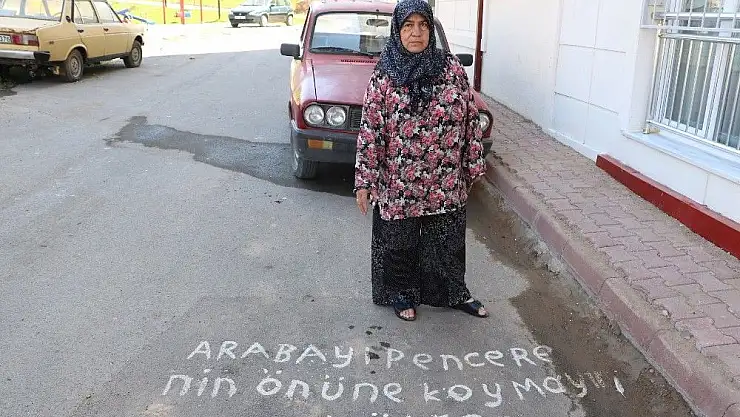 ARABAYI PENCERE
nin önüne koymayın